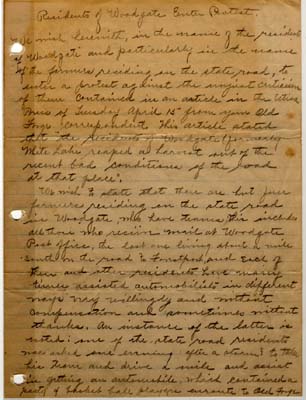 Residents of Woodgate Enter Protest.
We wish herewith, in the name of the residents
of Woodgate and particularly in the name
of the farmers residing on the state road, to
enter a protest against the unjust criticism
of them contained in an article in the Utica
Press of Tuesday April 15" from your Old
Forge correspondent. This article stated
that the residents of Woodgate formerly
White Lake reaped a harvest out of the
recent bad conditions of the road
at that place".
We wish to state that there are but five
farmers residing on the state road
in Woodgate who have teams this includes
all those who receive mail at Woodgate
Post office, the last one living about a mile
south on the road to Forestport, and each of
these and other residents have many
times assisted automobilists in different
ways very willingly and without
compensation and sometimes without
thanks. An instance of the latter is
noted: one of the state road residents
was asked one evening after a storm to take
his team and drive a mile and assist
in getting an automobile, which contained a
party of basket ball players enroute to Old Forge